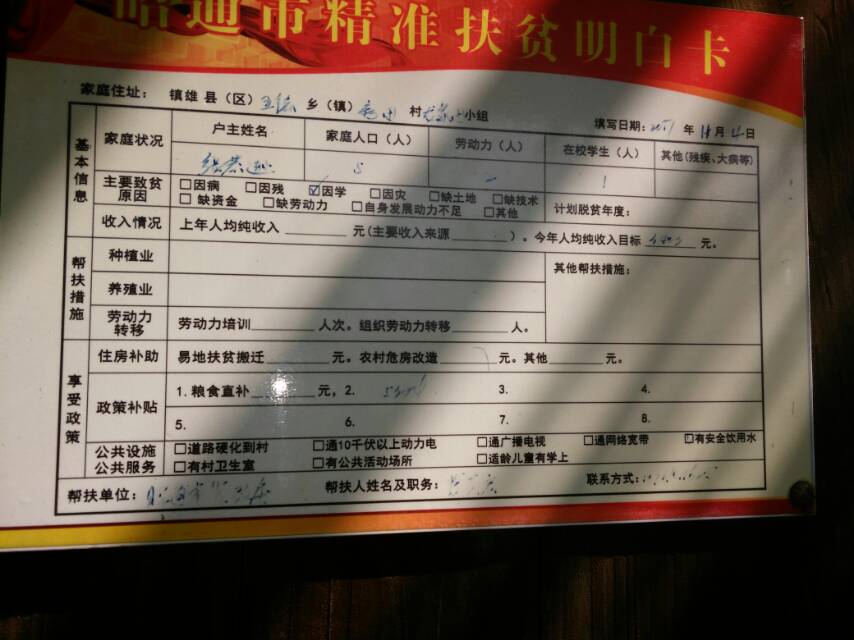 昭通市精准扶贫明白卡
家庭住址： 镇雄 县（区） 乡（镇） 村 小组 填写日期： 年 11 月 日
基本信息
家庭状况 户主姓名 家庭人口（人） 劳动力（人） 在校学生（人） 其他(残疾、大病等)
5 1
主要致贫原因 □因病 □因残 ☑因学 □因灾 □缺土地 □缺技术
□缺资金 □缺劳动力 □自身发展动力不足 □其他 计划脱贫年度：
收入情况 上年人均纯收入______元(主要收入来源______)。今年人均纯收入目标 元。
帮扶措施
种植业 其他帮扶措施：
养殖业
劳动力转移 劳动力培训______人次。组织劳动力转移______人。
享受政策
住房补助 易地扶贫搬迁______元。农村危房改造______元。其他______元。
政策补贴 1.粮食直补______元，2. 3. 4.
5. 6. 7. 8.
公共设施 □道路硬化到村 □通10千伏以上动力电 □通广播电视 □通网络宽带 □有安全饮用水
公共服务 □有村卫生室 □有公共活动场所 □适龄儿童有学上
帮扶单位： 帮扶人姓名及职务： 联系方式：